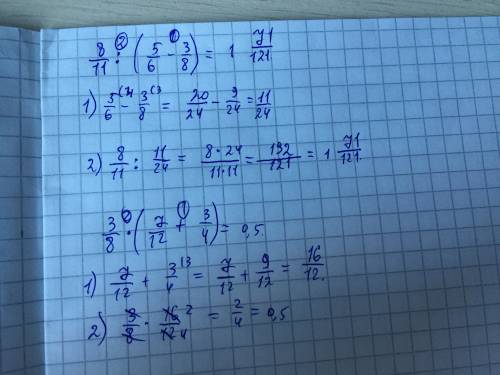 8/11 :② (5/6 -① 3/8) = 1 71/121
1) 5/6 (4 - 3/8 (3 = 20/24 - 9/24 = 11/24
2) 8/11 : 11/24 = 8·24/11·11 = 192/121 = 1 71/121.
3/8 ·② (7/12 +① 3/4) = 0,5
1) 7/12 + 3/4 (3 = 7/12 + 9/12 = 16/12.
2) 3/8 · 16 2/12 4 = 2/4 = 0,5